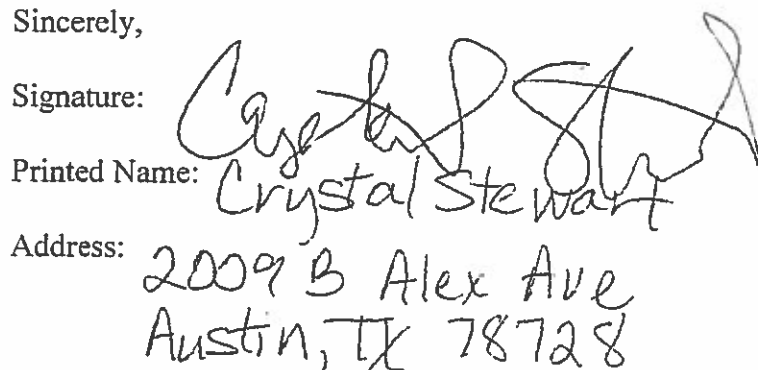 Sincerely,
Signature: Crystal Stewart
Printed Name: Crystal Stewart
Address: 2009 B Alex Ave
Austin, TX 78728